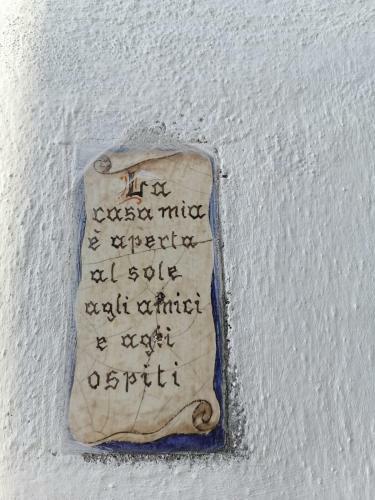 La
casa mia
è aperta
al sole
agli amici
e agli
ospiti